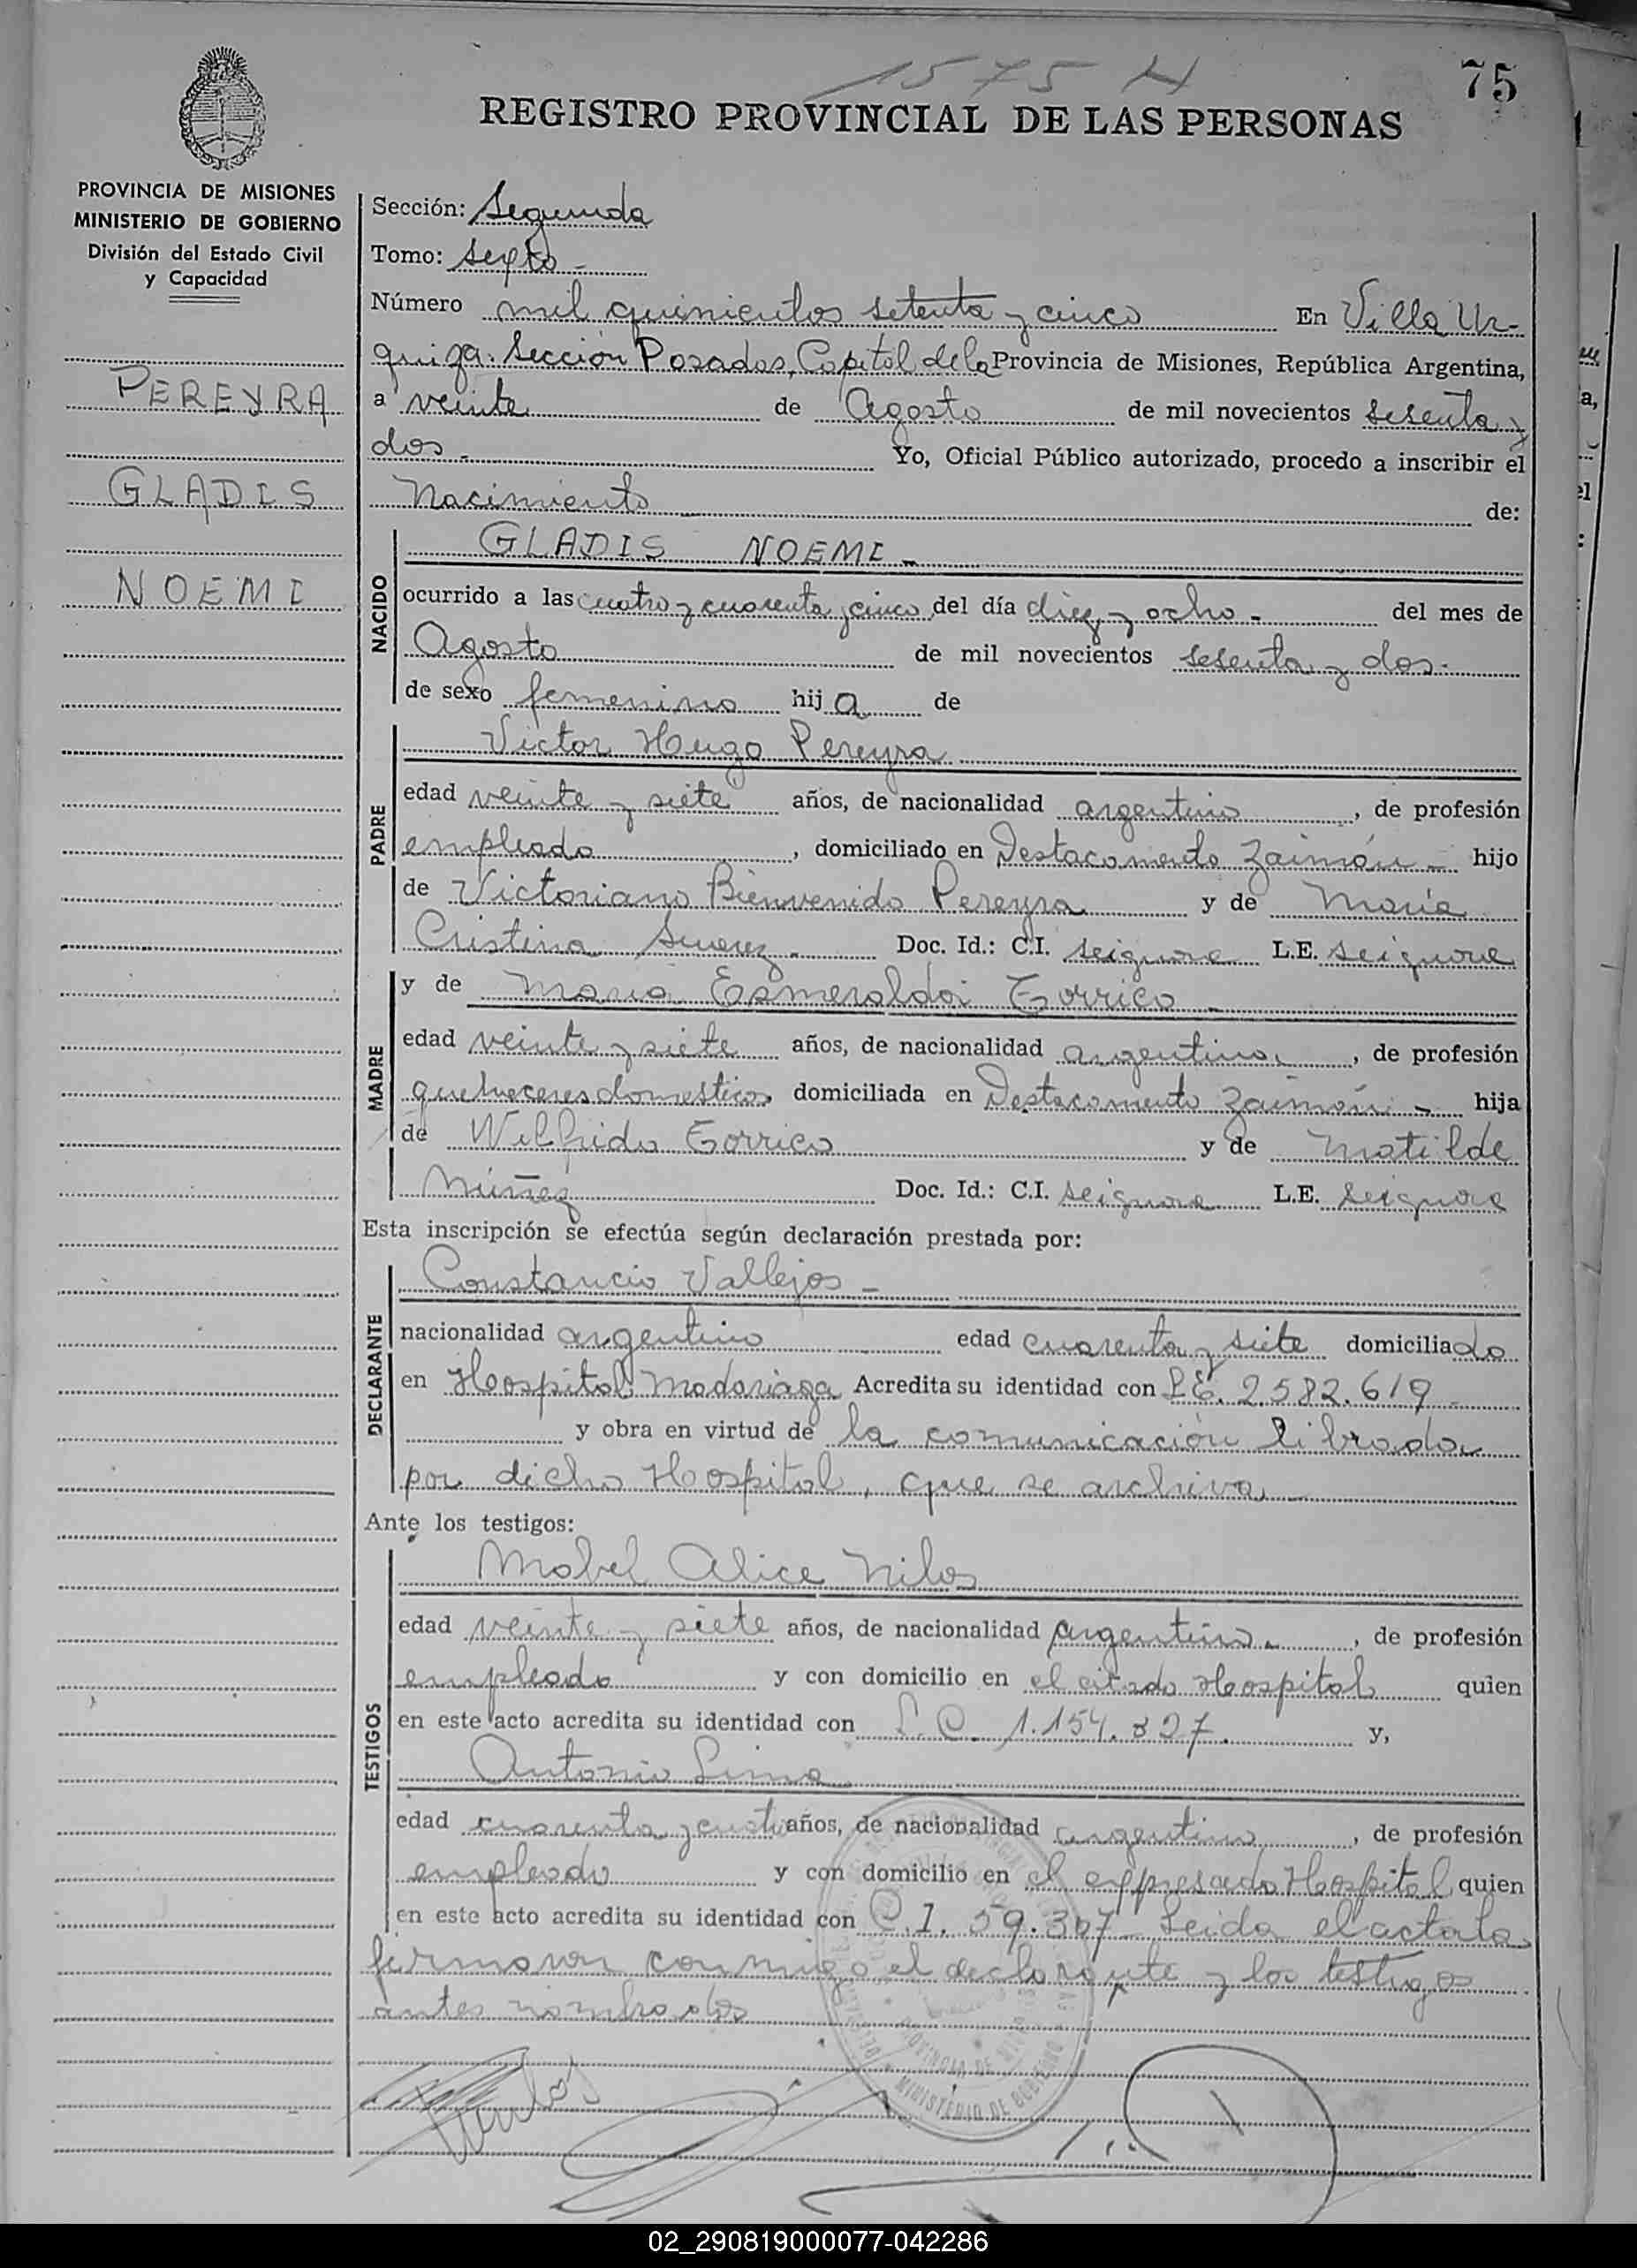 1575 H
75
REGISTRO PROVINCIAL DE LAS PERSONAS
PROVINCIA DE MISIONES
MINISTERIO DE GOBIERNO
División del Estado Civil
y Capacidad
PEREYRA
GLADIS
NOEMI
Sección: Segunda
Tomo: sexto -
Número mil quinientos setenta y cinco En Villa Ur-
quiza. Sección Posadas, Capital de la Provincia de Misiones, República Argentina,
a veinte de Agosto de mil novecientos sesenta y
dos - Yo, Oficial Público autorizado, procedo a inscribir el
Nacimiento de:
NACIDO
GLADIS NOEMI -
ocurrido a las cuatro y cuarenta y cinco del día diez y ocho - del mes de
Agosto de mil novecientos sesenta y dos.
de sexo femenino hija de
PADRE
Victor Hugo Pereyra
edad veinte y siete años, de nacionalidad argentino, de profesión
empleado, domiciliado en Destacamento Zaimán - hijo
de Victoriano Bienvenido Pereyra y de María
Cristina Suarez - Doc. Id.: C.I. seignora L.E. seignora
MADRE
y de María Esmeralda Torrico -
edad veinte y siete años, de nacionalidad argentina, de profesión
quehaceres domesticos domiciliada en Destacamento Zaimán - hija
de Wilfrido Torrico y de Matilde
Núñez Doc. Id.: C.I. seignora L.E. seignora
Esta inscripción se efectúa según declaración prestada por:
DECLARANTE
Constancio Vallejos -
nacionalidad argentino edad cuarenta y siete domiciliado
en Hospital Madariaga Acredita su identidad con L.E. 2.582.619 -
y obra en virtud de la comunicación librada
por dicho Hospital, que se archiva -
Ante los testigos:
TESTIGOS
Mabel Alice Nilos
edad veinte y siete años, de nacionalidad argentina, de profesión
empleada y con domicilio en el citado Hospital quien
en este acto acredita su identidad con L.C. 1.154.827. y,
Antonio Lima
edad cuarenta y cuatro años, de nacionalidad argentino, de profesión
empleado y con domicilio en el expresado Hospital quien
en este acto acredita su identidad con C.I. 59.367 Leida el acta la
firmaron conmigo el declarante y los testigos
antes nombrados
PROVINCIA DE MISIONES
MINISTERIO DE GOBIERNO
02_290819000077-042286